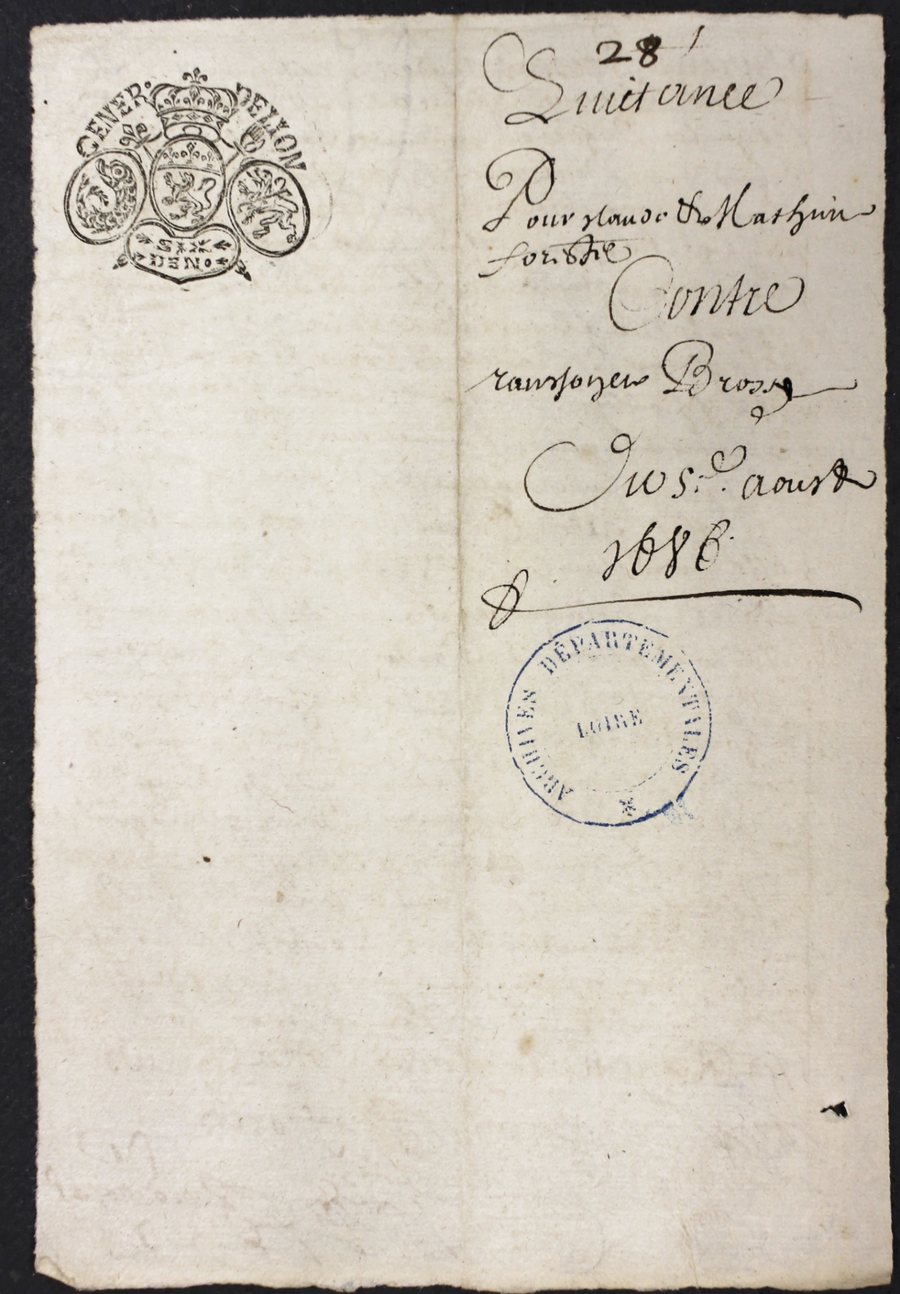 GENER. DE LYON
SIX
DEN.
28
Quictance
Pour Claude & Mathieu
forestie
Contre
Brosse
Du 5.e aoust
1686
ARCHIVES DÉPARTEMENTALES
LOIRE